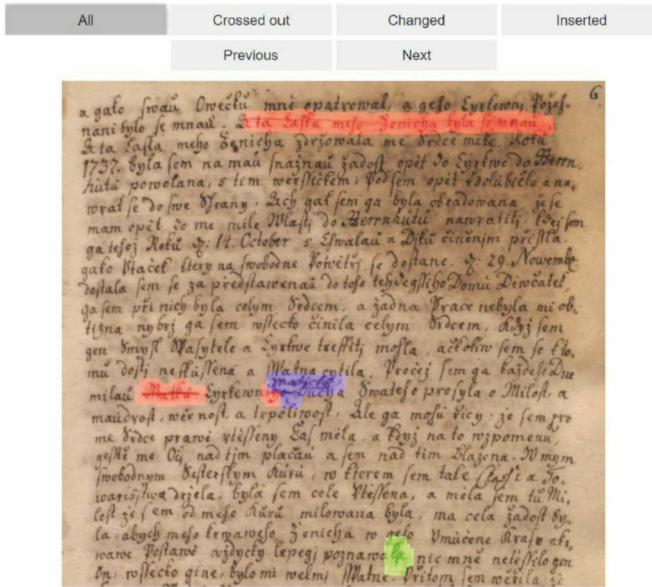 All
Crossed out
Changed
Inserted
Previous
Next
6.
a gako swau Owečku mně opatrowal, a geho Cyrkewnj Požeh-
nani bylo se mnau. A ta Laska meho Ženicha byla se mnau.
A ta Laska meho Ženicha zdržowala me Srdce mile. Roku
1737. byla sem na mau snažnau žadost opět do Cyrkwe do Herrn-
hutu powolana, s tim weršičkem: Pod sem opět Holubičko a na-
wrať se do swe Skrany. Ach gak sem ga byla obradowana že se
mam opět do me mile Wlasti do Herrnhutu nawratiti, kdež sem
ga tehož Roku d. 14. October s Chwalau a Djků činěnim prissla.
gako Ptaček ktery na swobodne Powětřj se dostane. d. 29. Novembr.
dostala sem se za představenau do toho tehdegssiho Domu Diwčatek,
ga sem při nich byla celym Srdcem, a žadna Prace nebyla mi ob-
tižna nybrž ga sem wssecko činila celym Srdcem, Když sem
gen Smysl Spasytele a Cyrkwe treffiti mohla, ačkoliw sem se k to-
mu dosti neskussena a Spatna cytila. Pročež sem ga každeho Dne
milau Matku Cyrkewnj Ducha Swateho prosyla o Milost, a
maudrost, wěrnost, a trpěliwost, Ale ga mohu řicy: že sem pro
me Srdce prawě potěsseny Čas měla, a když na to wzpomenu,
gestě me Oči nad tim plačau a sem nad tim blažena. W mym
swobodnym Sesterskym Kůru, w kterem sem take Classi a To-
warišstwa držela, byla sem cele Potěssena, a měla sem tu Mi-
lost že sem od meho Kůru milowana byla, ma cela žadost by-
la, abych meho krwaweho Ženicha w geho Umučene Krase a kr-
wawe Postawě wždycky lepegi poznawala, nic mně netěssilo gen
On, wssecko gine, bylo mi welmi Spatne. Přitom sem wěřila že